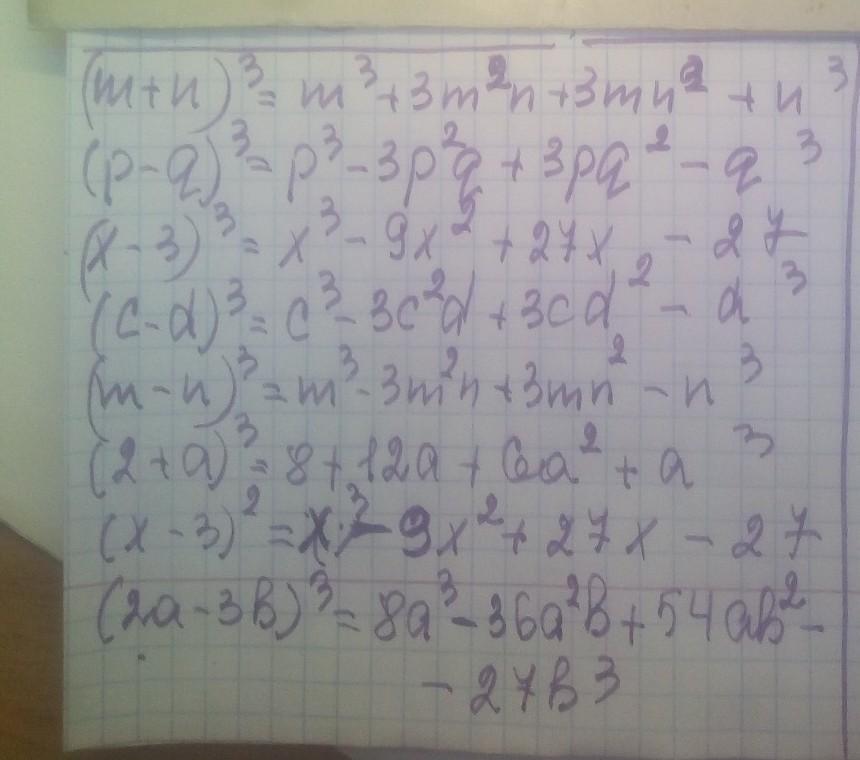 (m+n)³ = m³ + 3m²n + 3mn² + n³
(p-q)³ = p³ - 3p²q + 3pq² - q³
(x-3)³ = x³ - 9x² + 27x - 27
(c-d)³ = c³ - 3c²d + 3cd² - d³
(m-n)³ = m³ - 3m²n + 3mn² - n³
(2+a)³ = 8 + 12a + 6a² + a³
(x-3)² = x³ - 9x² + 27x - 27
(2a-3b)³ = 8a³ - 36a²b + 54ab² -
- 27b3